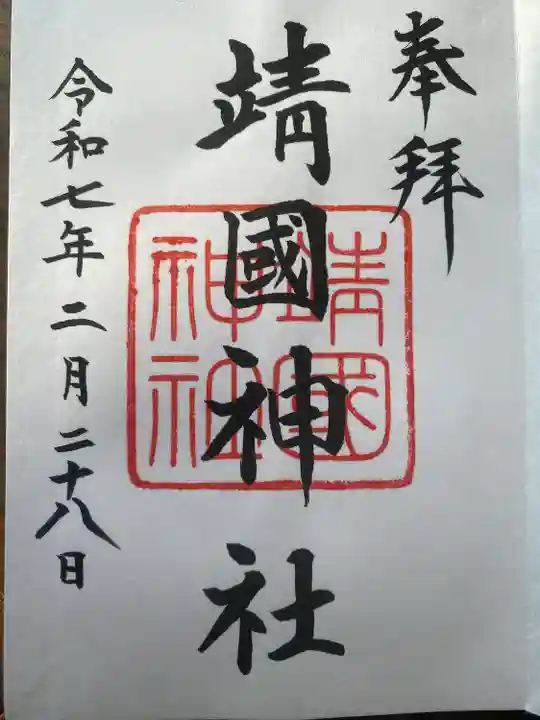 奉拝
靖國神社
靖国
神社
令和七年二月二十八日